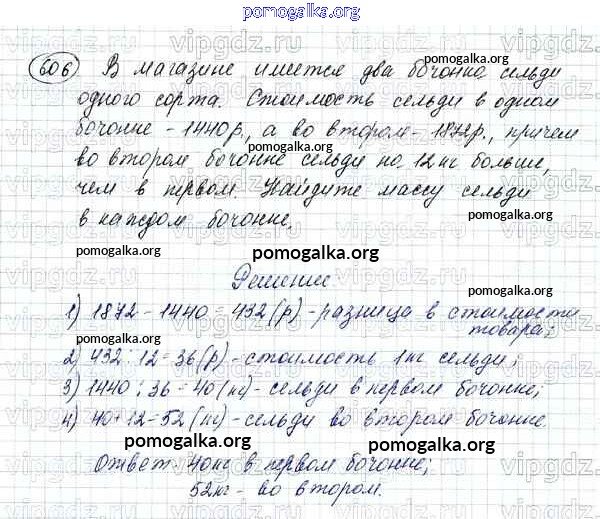 pomogalka.org
606 В магазине имеется два бочонка сельди
одного сорта. Стоимость сельди в одном
бочонке - 1440р., а во втором - 1872р., причем
во втором бочонке сельди на 12 кг больше,
чем в первом. Найдите массу сельди
в каждом бочонке.
pomogalka.org
Решение
1) 1872 - 1440 = 432 (р) - разница в стоимости
товара;
2) 432 : 12 = 36 (р) - стоимость 1 кг сельди;
3) 1440 : 36 = 40 (кг) - сельди в первом бочонке;
4) 40 + 12 = 52 (кг) - сельди во втором бочонке.
pomogalka.org
Ответ: 40 кг в первом бочонке;
52 кг - во втором.